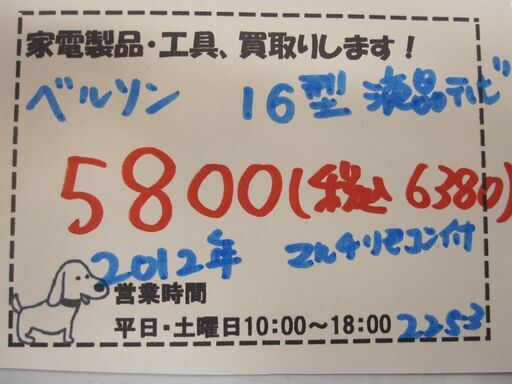 家電製品・工具、買取りします！
ベルソン 16型 液晶テレビ
5800(税込6380)
2012年 マルチリモコン付
営業時間
平日・土曜日10:00～18:00 2253